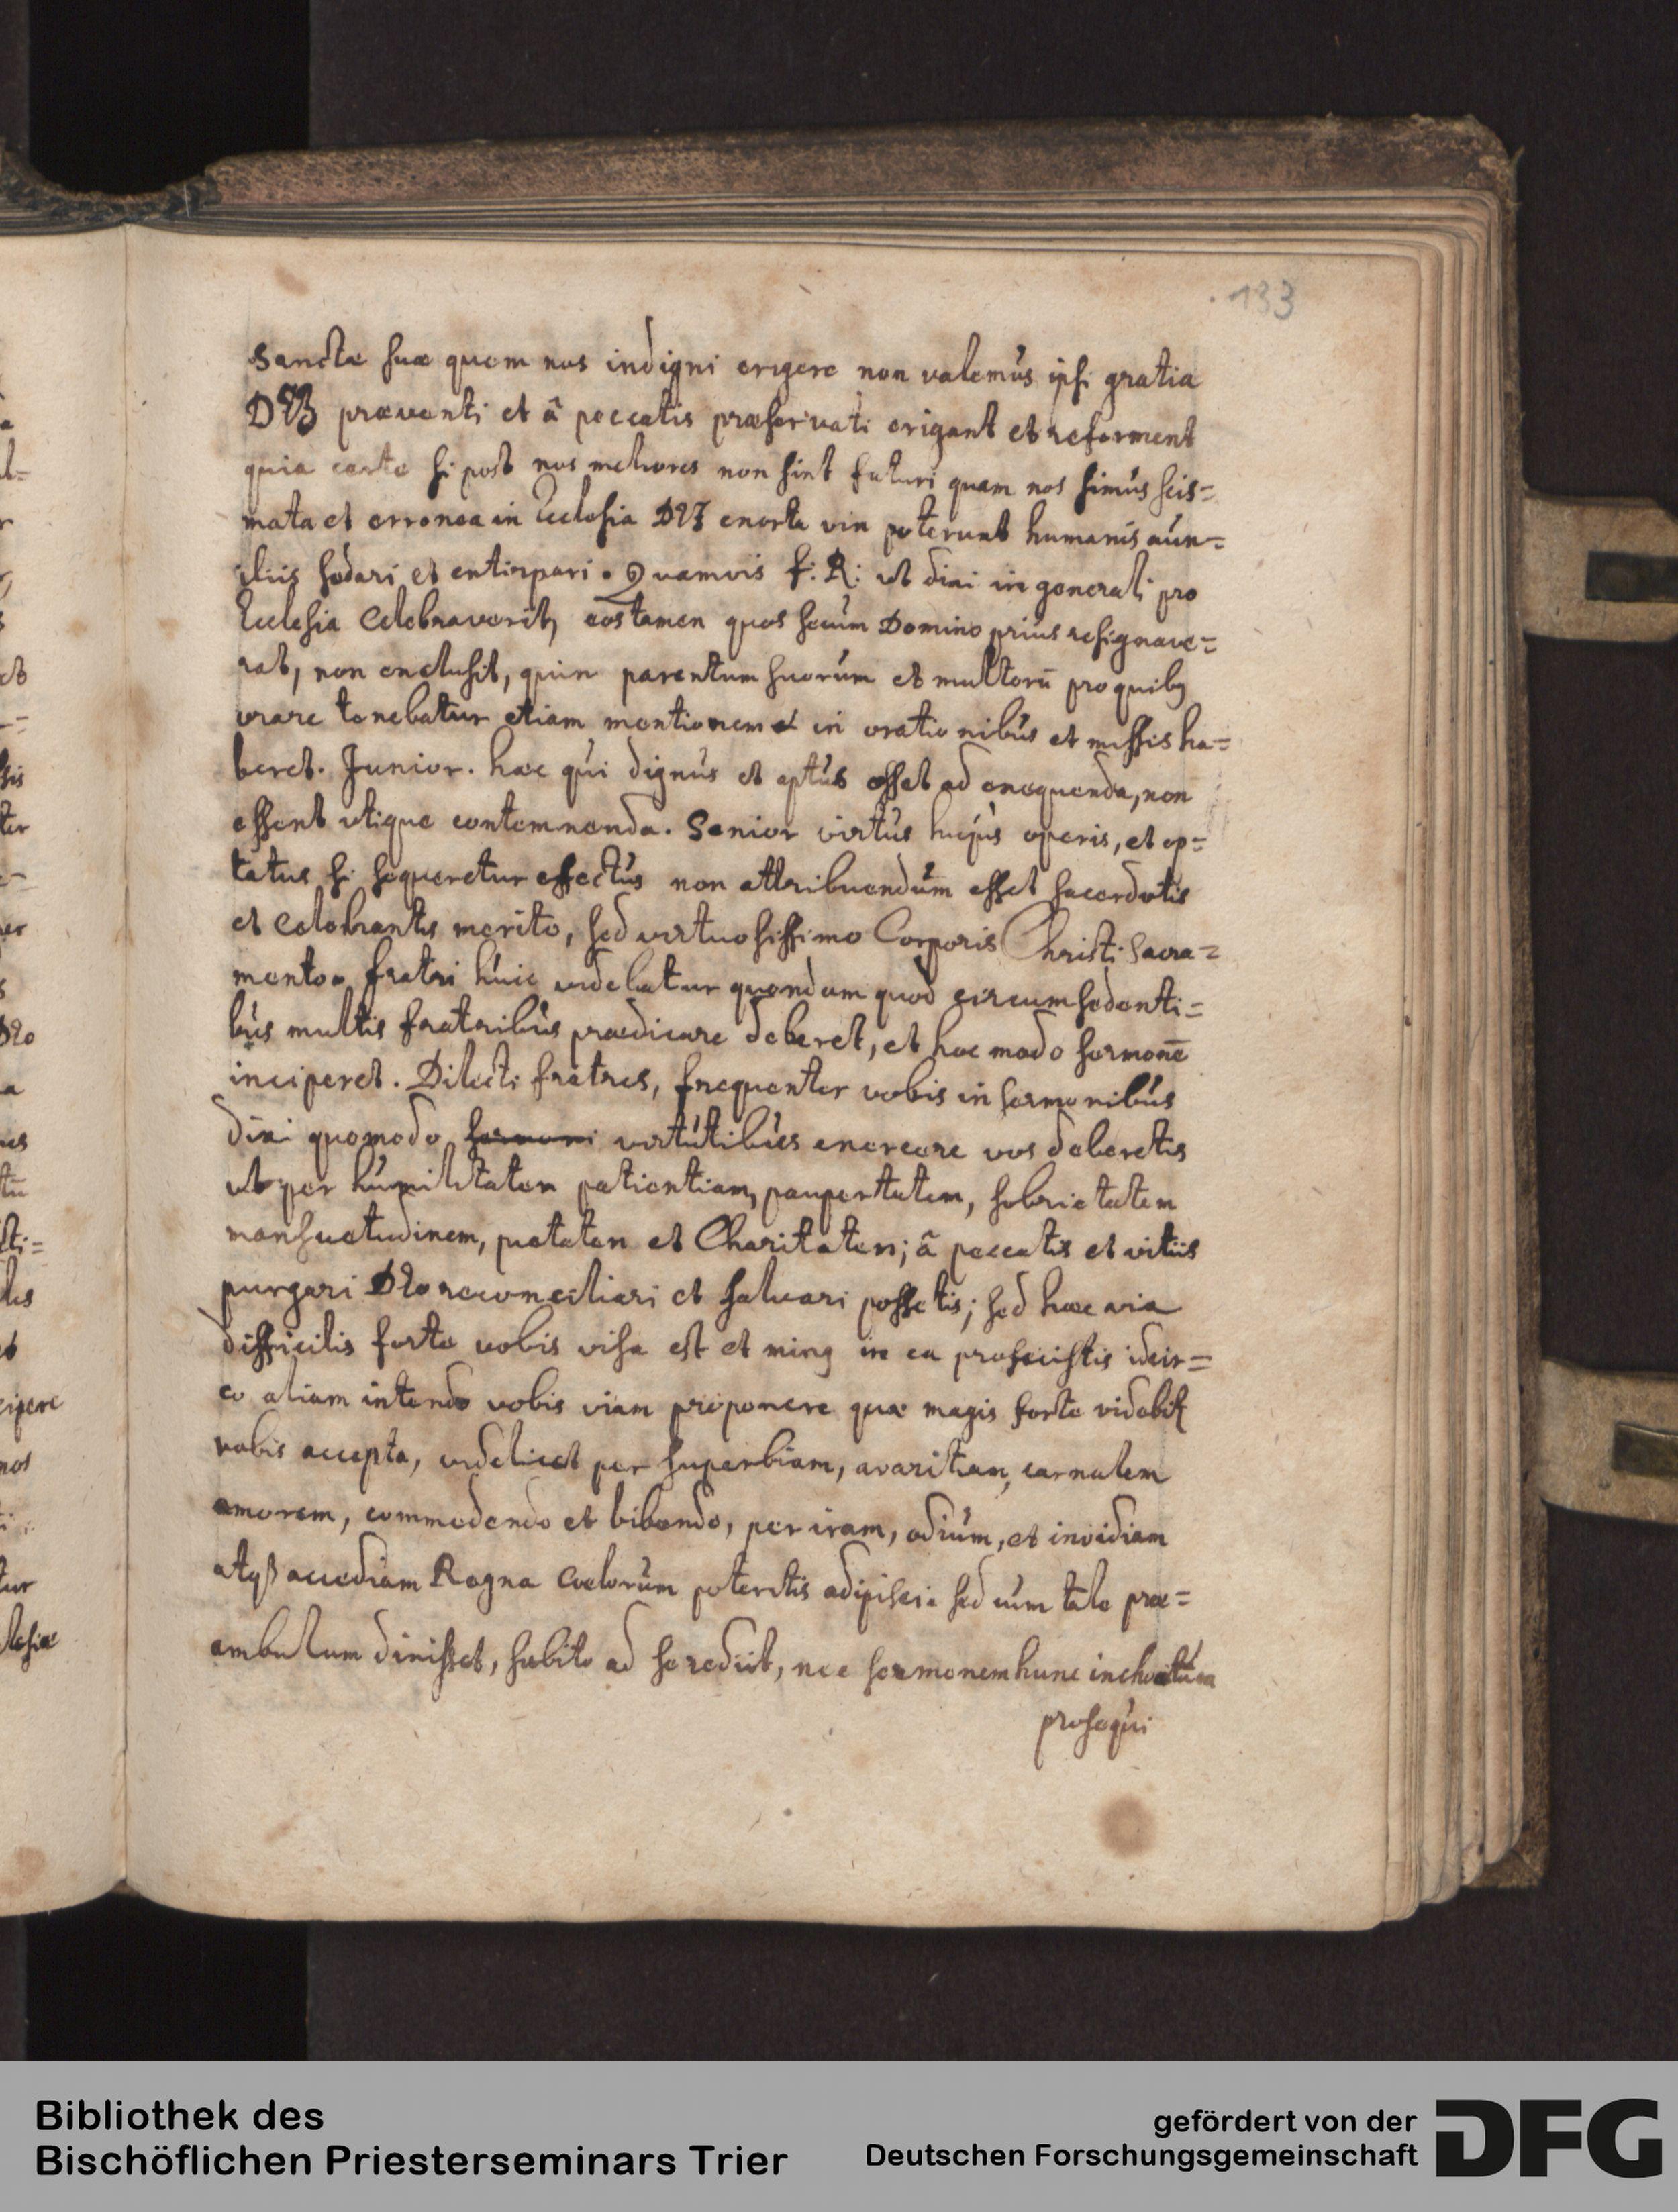 133
Sanctæ suæ quem nos indigni erigere non valemus ipsi gratia
DEI præventi et â peccatis præservati erigant et reforment
quia certe si post nos meliores non sint futuri quam nos simus scis=
mata et erronea in Ecclesia DEI exorta vix poterunt humanis aux=
iliis sedari et extirpari. Quamvis f: R: ut dixi in generali pro
Ecclesia celebraverit, eos tamen quos secum Domino prius resignave=
rat, non exclusit, quin parentum suorum et multorū pro quibȝ
orare tenebatur etiam mentionem in orationibus et missis ha=
beret. Junior. hæc qui dignus et aptus esset ad exequenda, non
essent utique contemnenda. Senior virtus hujus operis, et op=
tatus si sequeretur effectus non attribuendum esset sacerdotis
et celebrantis merito, sed virtuosissimo Corporis Christi Sacra=
mento. fratri huic videbatur quondam quod circumsedenti=
bus multis fratribus prædicare deberet, et hoc modo sermonē
inciperet. Dilecti fratres, frequenter vobis in sermonibus
dixi quomodo sermoni virtutibus exercere vos deberetis
ut per humilitatem patientiam, paupertatem, sobrietatem
mansuetudinem, pietatem et Charitatem; â peccatis et vitiis
purgari DEO reconciliari et salvari possetis; sed hæc via
difficilis forte vobis visa est et minȝ in ea profecistis idcir=
co aliam intendo vobis viam proponere quæ magis forte videbit
vobis accepta, videlicet per superbiam, avaritiam, carnalem
amorem, commedendo et bibendo, per iram, odium, et invidiam
atqȝ accediam Regna Coelorum poteritis adipisci. sed cum tale præ=
ambulum dixisset, subito ad se rediit, nec sermonem hunc inchoatum
prosequi
Bibliothek des
Bischöflichen Priesterseminars Trier
gefördert von der
Deutschen Forschungsgemeinschaft
DFG